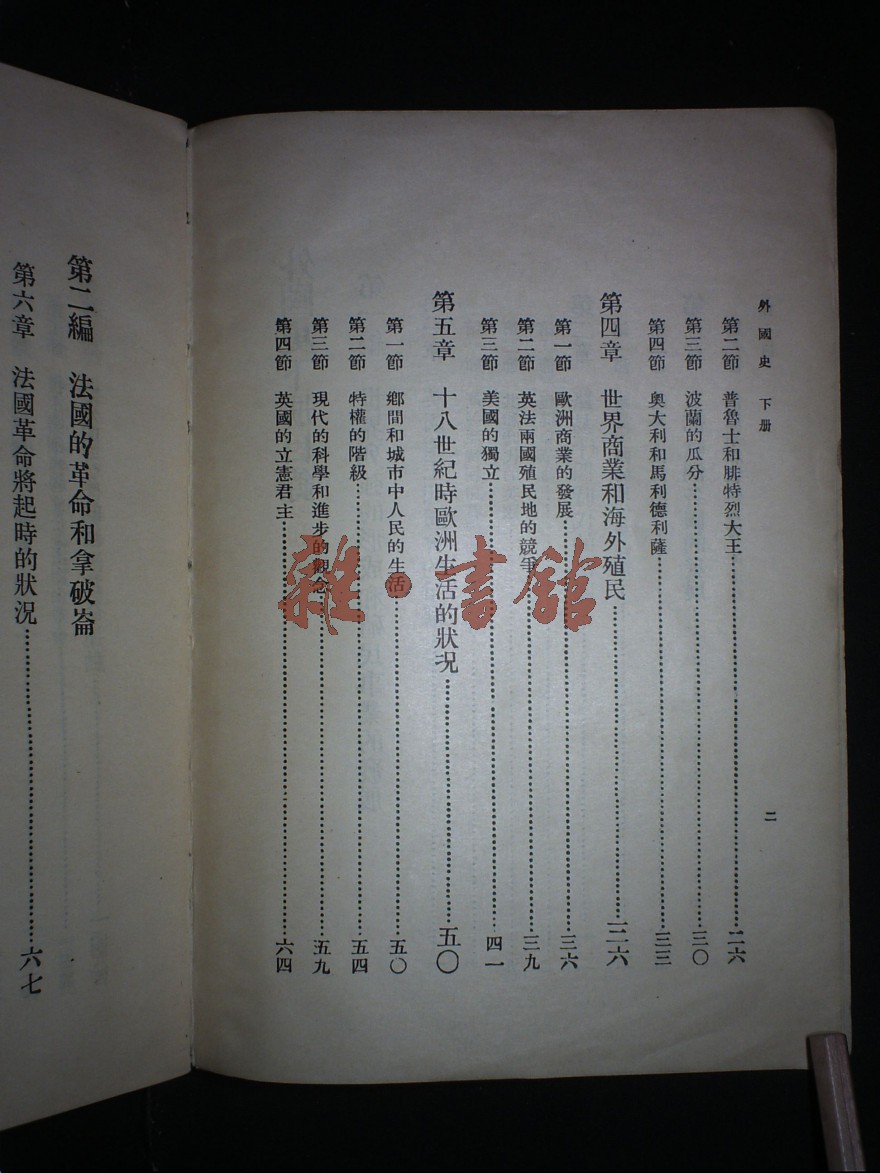 外國史 下册
二
第二節 普魯士和腓特烈大王 二六
第三節 波蘭的瓜分 三〇
第四節 奧大利和馬利德利薩 三三
第四章 世界商業和海外殖民 三六
第一節 歐洲商業的發展 三六
第二節 英法兩國殖民地的競爭 三九
第三節 美國的獨立 四一
第五章 十八世紀時歐洲生活的狀況 五〇
第一節 鄉間和城市中人民的生活 五〇
第二節 特權的階級 五四
第三節 現代的科學和進步的觀念 五九
第四節 英國的立憲君主 六四
第二編 法國的革命和拿破崙
第六章 法國革命將起時的狀況 六七
雜·書館